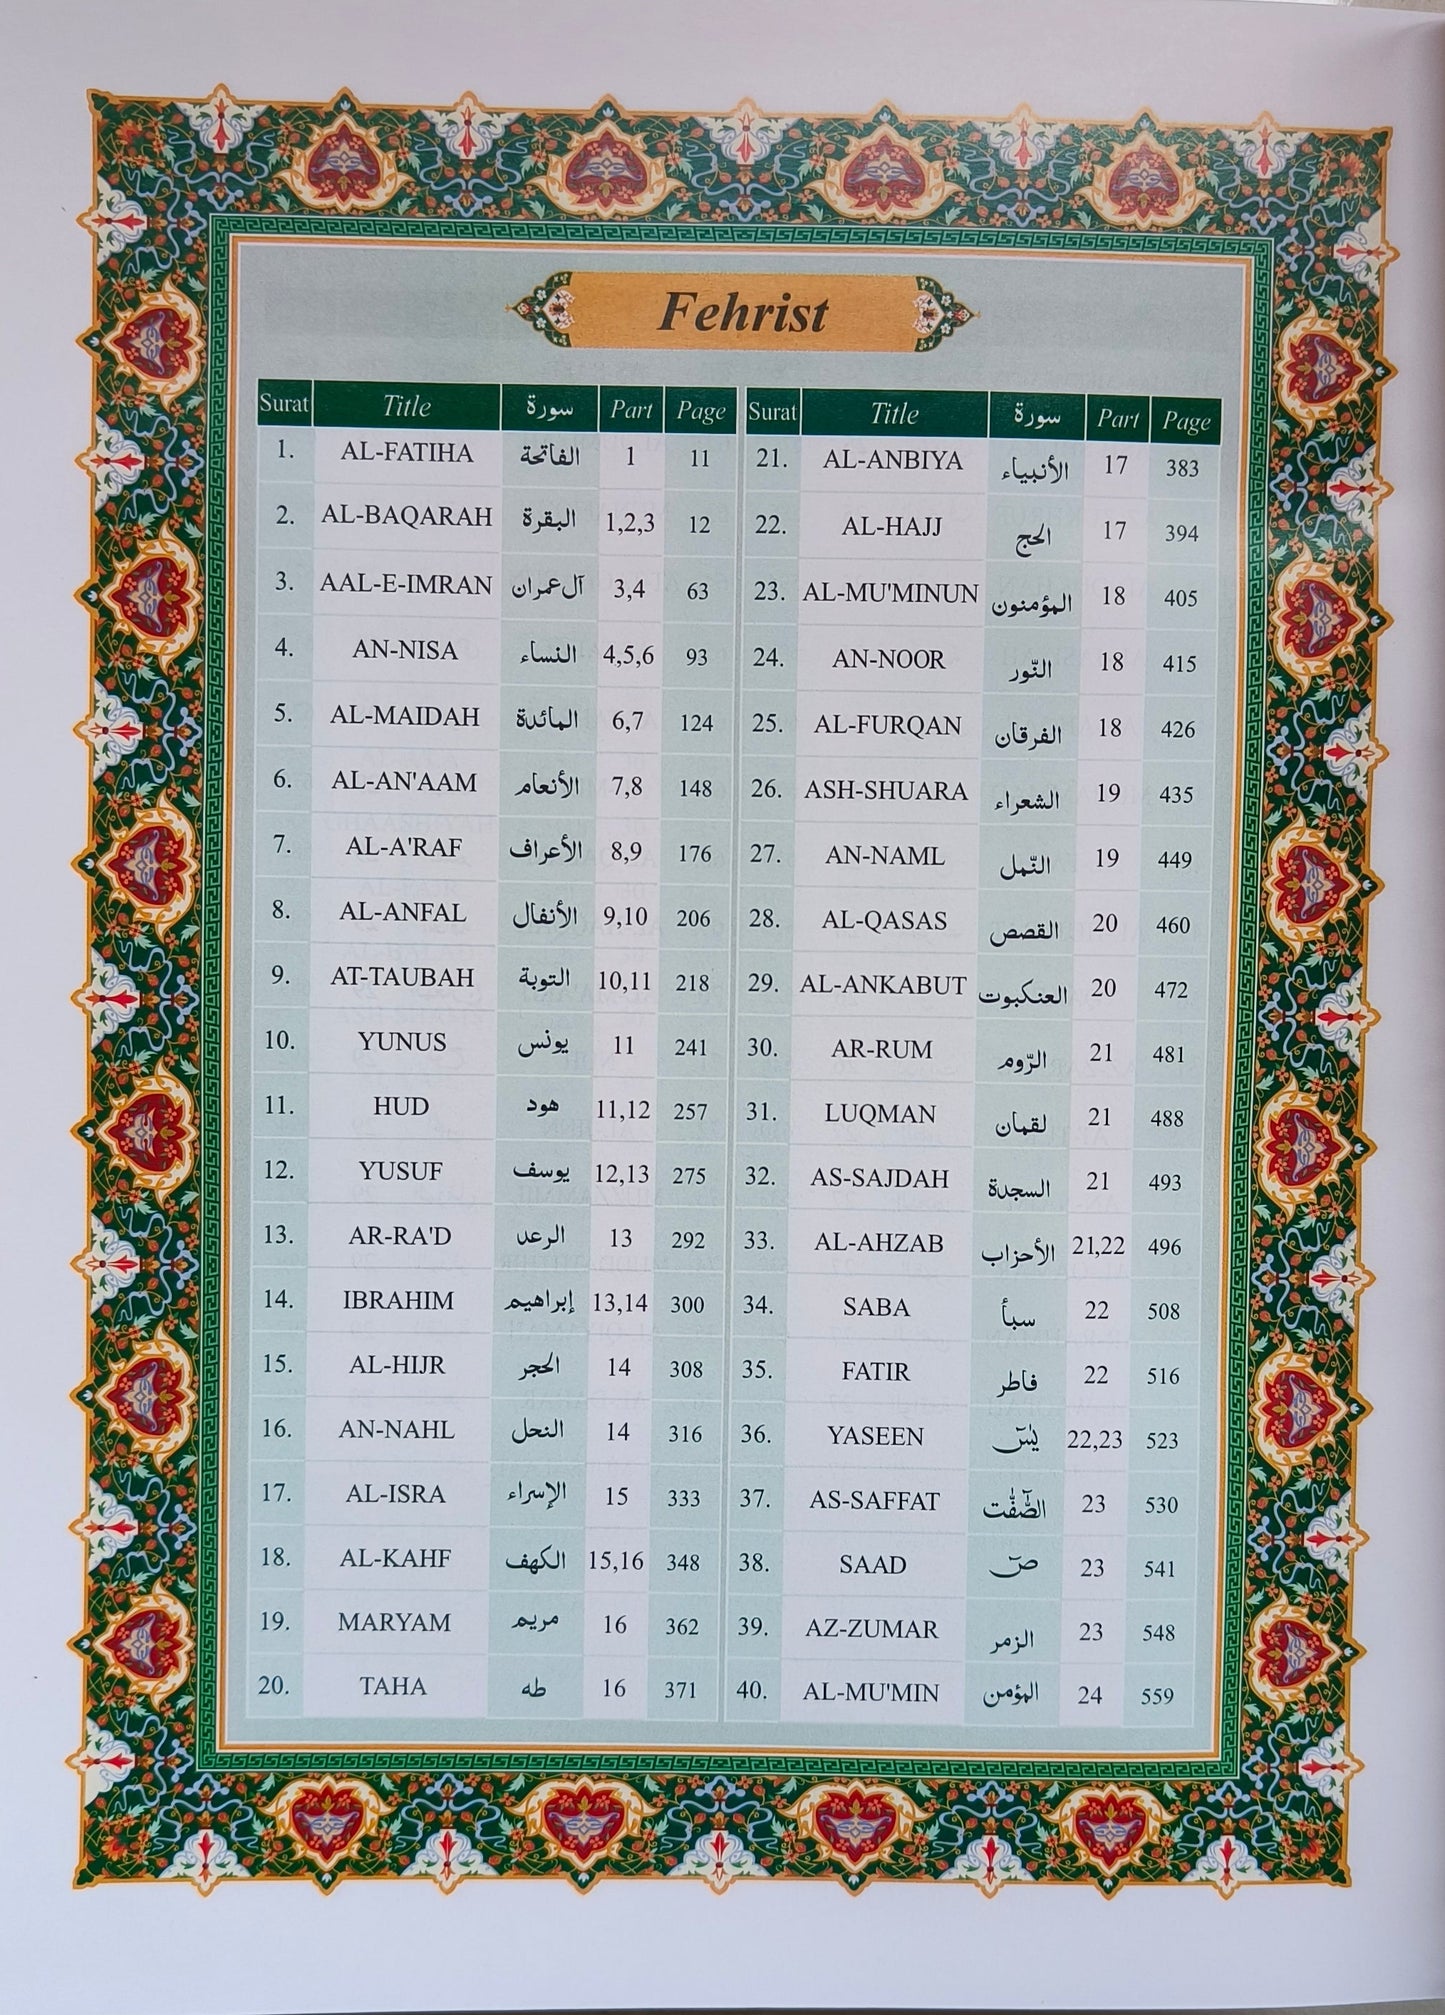 Fehrist
Surat Title سورة Part Page Surat Title سورة Part Page
1. AL-FATIHA الفاتحة 1 11 21. AL-ANBIYA الأنبياء 17 383
2. AL-BAQARAH البقرة 1,2,3 12 22. AL-HAJJ الحج 17 394
3. AAL-E-IMRAN آل عمران 3,4 63 23. AL-MU'MINUN المؤمنون 18 405
4. AN-NISA النساء 4,5,6 93 24. AN-NOOR النّور 18 415
5. AL-MAIDAH المائدة 6,7 124 25. AL-FURQAN الفرقان 18 426
6. AL-AN'AAM الأنعام 7,8 148 26. ASH-SHUARA الشعراء 19 435
7. AL-A'RAF الأعراف 8,9 176 27. AN-NAML النّمل 19 449
8. AL-ANFAL الأنفال 9,10 206 28. AL-QASAS القصص 20 460
9. AT-TAUBAH التوبة 10,11 218 29. AL-ANKABUT العنكبوت 20 472
10. YUNUS يونس 11 241 30. AR-RUM الرّوم 21 481
11. HUD هود 11,12 257 31. LUQMAN لقمان 21 488
12. YUSUF يوسف 12,13 275 32. AS-SAJDAH السجدة 21 493
13. AR-RA'D الرعد 13 292 33. AL-AHZAB الأحزاب 21,22 496
14. IBRAHIM إبراهيم 13,14 300 34. SABA سبأ 22 508
15. AL-HIJR الحجر 14 308 35. FATIR فاطر 22 516
16. AN-NAHL النحل 14 316 36. YASEEN يٰسٓ 22,23 523
17. AL-ISRA الإسراء 15 333 37. AS-SAFFAT الصّٰٓفّٰت 23 530
18. AL-KAHF الكهف 15,16 348 38. SAAD صٓ 23 541
19. MARYAM مريم 16 362 39. AZ-ZUMAR الزمر 23 548
20. TAHA طه 16 371 40. AL-MU'MIN المؤمن 24 559